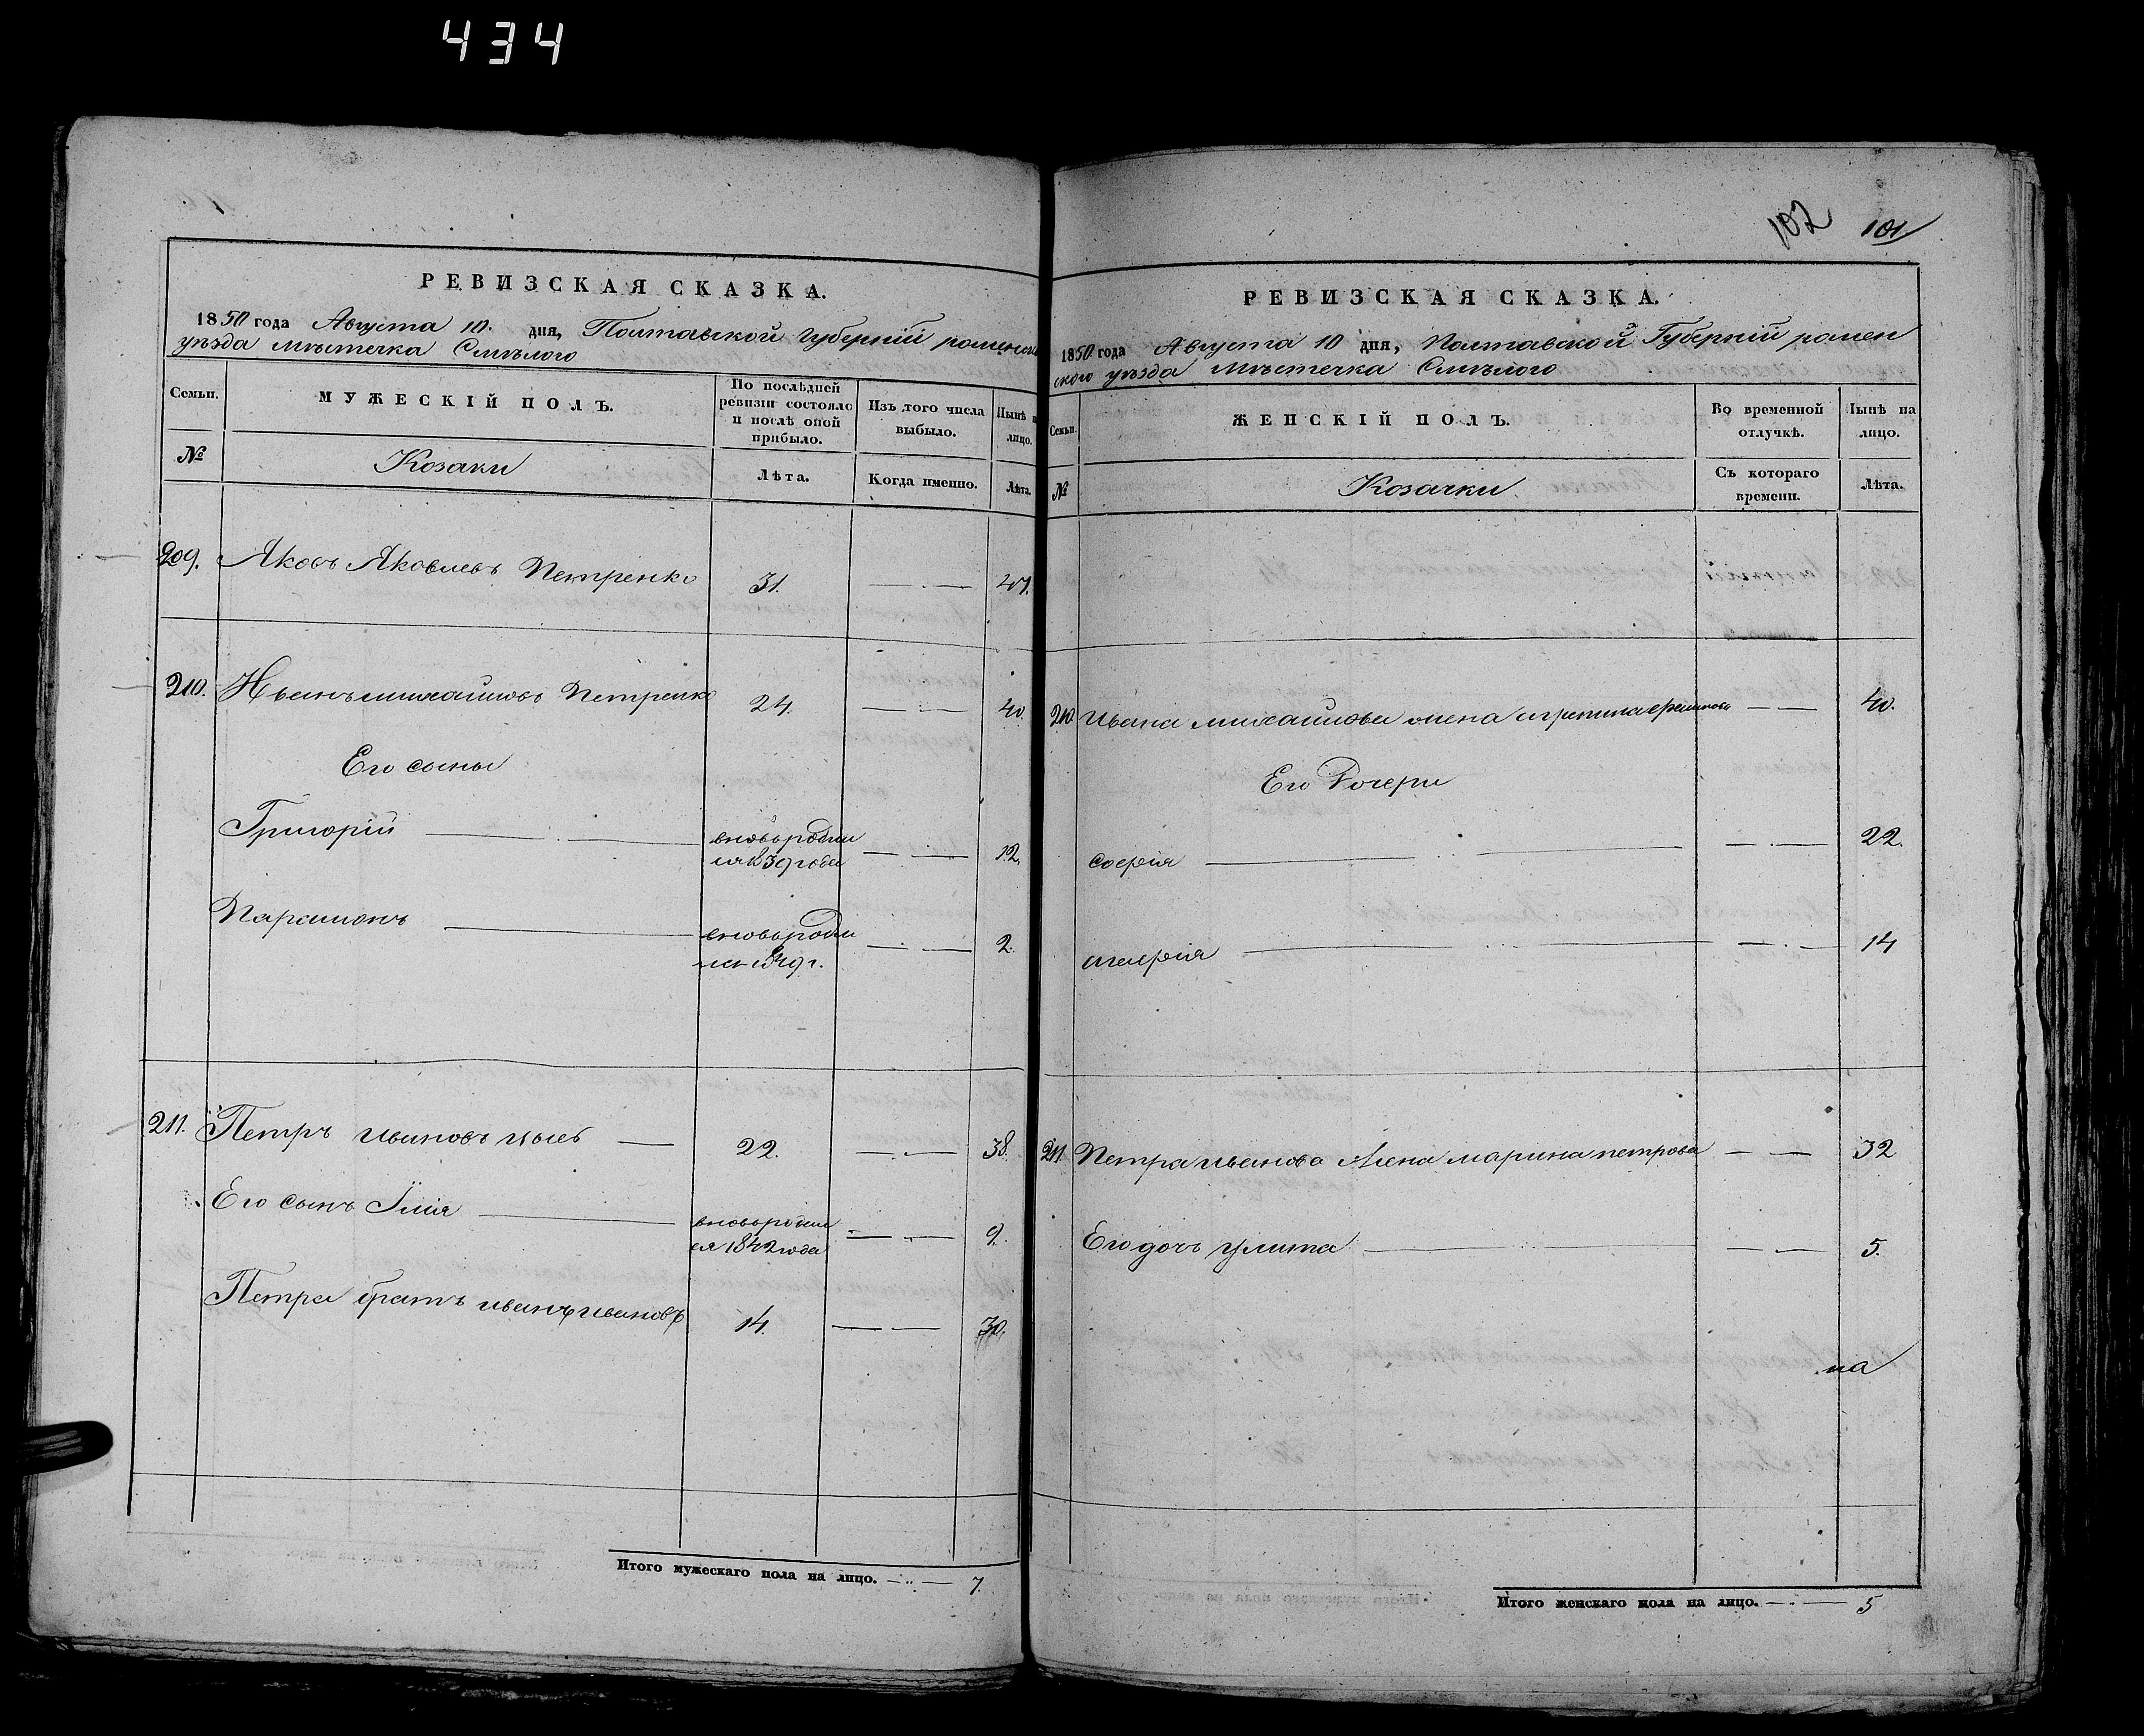 434
РЕВИЗСКАЯ СКАЗКА.
1850 года Августа 10. дня, Полтавской Губерній роменск
уѣзда мѣстечка Смѣлого
Семьи.
МУЖЕСКІЙ ПОЛЪ.
По послѣдней
ревизіи состояло
и послѣ оной
прибыло.
Изъ того числа
выбыло.
Нынѣ н
лицо.
№
Козаки
Лѣта.
Когда именно.
Лѣта.
209. Яковъ Яковлевъ Петренко 31. 47.
210. Иванъ михайловъ Петренко 24. 40.
Его сыны
Григорій вновь родил
ся 1839 года 12.
Парамонъ вновь родил
ся 1849 г. 2.
211. Петръ ивановъ 22. 38.
Его сынъ Илія вновь родил
ся 1842 года 9.
Петра братъ иванъ ивановъ 14. 30.
Итого мужескаго пола на лицо. 7.
102 101
РЕВИЗСКАЯ СКАЗКА.
1850 года Августа 10 дня, Полтавской Губерній ромен
ского уѣзда Мѣстечка Смѣлого
Семьи.
ЖЕНСКІЙ ПОЛЪ.
Во временной
отлучкѣ.
Нынѣ на
лицо.
№
Козачки
Съ котораго
времени.
Лѣта.
210. Ивана михайлова жена агрипина ефимова 40.
Его Дочери
софія 22.
14
211. Петра иванова жена марина петрова 32
Его дочь улита 5.
на
Итого женскаго пола на лицо. 5